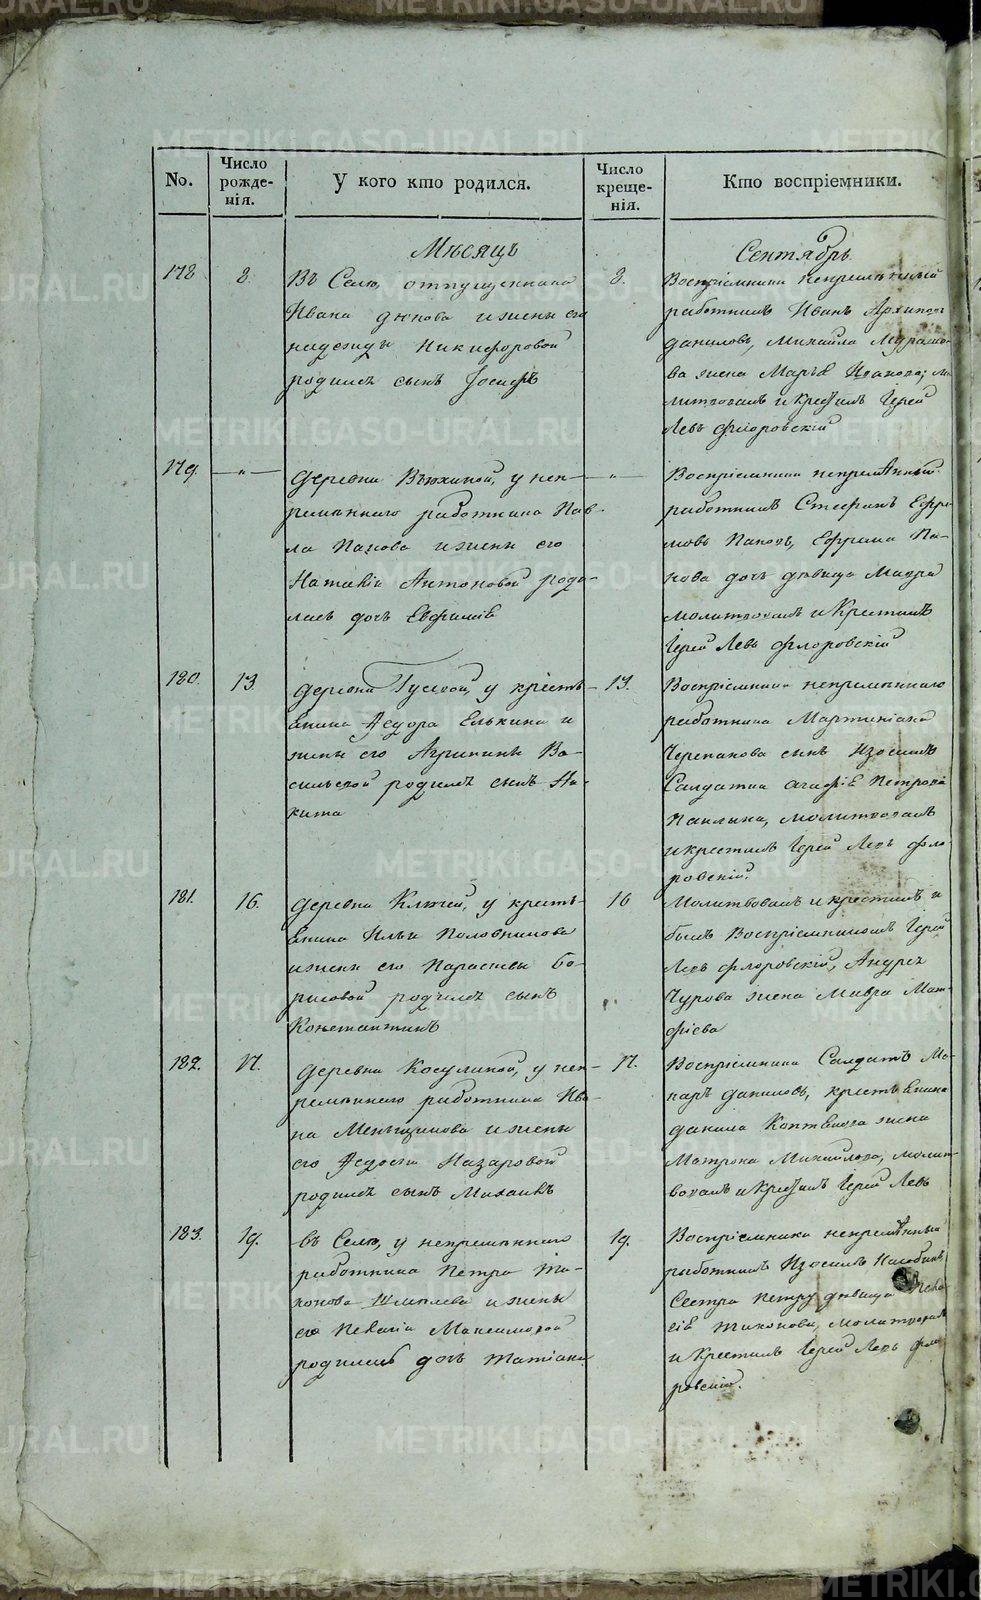 METRIKI.GASO-URAL.RU
No.
Число рожде-нія.
У кого кто родился.
Число креще-нія.
Кто воспріемники.
Мѣсяцъ
Сентябрь
178
8.
Въ Селѣ, отпущеннаго
Ивана Дюкова и жены его
Надежды Никифоровой
родился сынъ Іосифъ
8.
Воспріемники непремѣнный
работникъ Иванъ Архипов
Даниловъ, Михайла
ва жена Марья Иванова; мо
литвовалъ и крестилъ Іерей
Левъ Флоровскій
179.
— „ —
Деревни у неп-
ремѣннаго работника Пав-
ла Панова и жены его
Наталіи Антоновой роди-
лась дочь Евфимія
— „ —
Воспріемники непремѣнный
работникъ Стефанъ Ефре-
мовъ Пановъ, Ефрема Па-
нова дочь дѣвица Мавра
молитвовалъ и крестилъ
Іерей Левъ Флоровскій
180.
13.
Деревни Гусевой, у кресть-
янина Федора Елькина и
жены его Агрипины Ва-
сильевой родился сынъ Ни-
кита
13.
Воспріемники непремѣннаго
работника Мартиніана
Черепанова сынъ Изосимъ
Салдатка Агафія Петрова
молитвовалъ
и крестилъ Іерей Левъ Фло-
ровскій.
181.
16.
Деревни Ключей, у кресть-
янина Ильи Половникова
и жены его Парасковьи Бо-
рисовой родился сынъ
Константинъ
16
Молитвовалъ и крестилъ и
былъ Воспріемникомъ Іерей
Левъ Флоровскій, Андрея
Чурова жена Мавра Мат-
фіева
182.
17.
Деревни Косулиной, у неп-
ремѣннаго работника Ива-
на Меньщикова и жены
его Федосьи Назаровой
родился сынъ Михаилъ
17.
Воспріемники Салдатъ Ма-
каръ Даниловъ, крестьянина
Данила Коптяева жена
Матрона Михайлова, молит-
вовалъ и крестилъ Іерей Левъ
183.
19.
въ Селѣ, у непремѣннаго
работника Петра Ти-
хонова Шмелева и жены
его Пелагіи Максимовой
родилась дочь Татіана
19.
Воспріемники непремѣнный
работникъ Изосимъ
Сестра Петру дѣвица
Тихонова, молитвовалъ
и крестилъ Іерей Левъ Фло
ровскій.